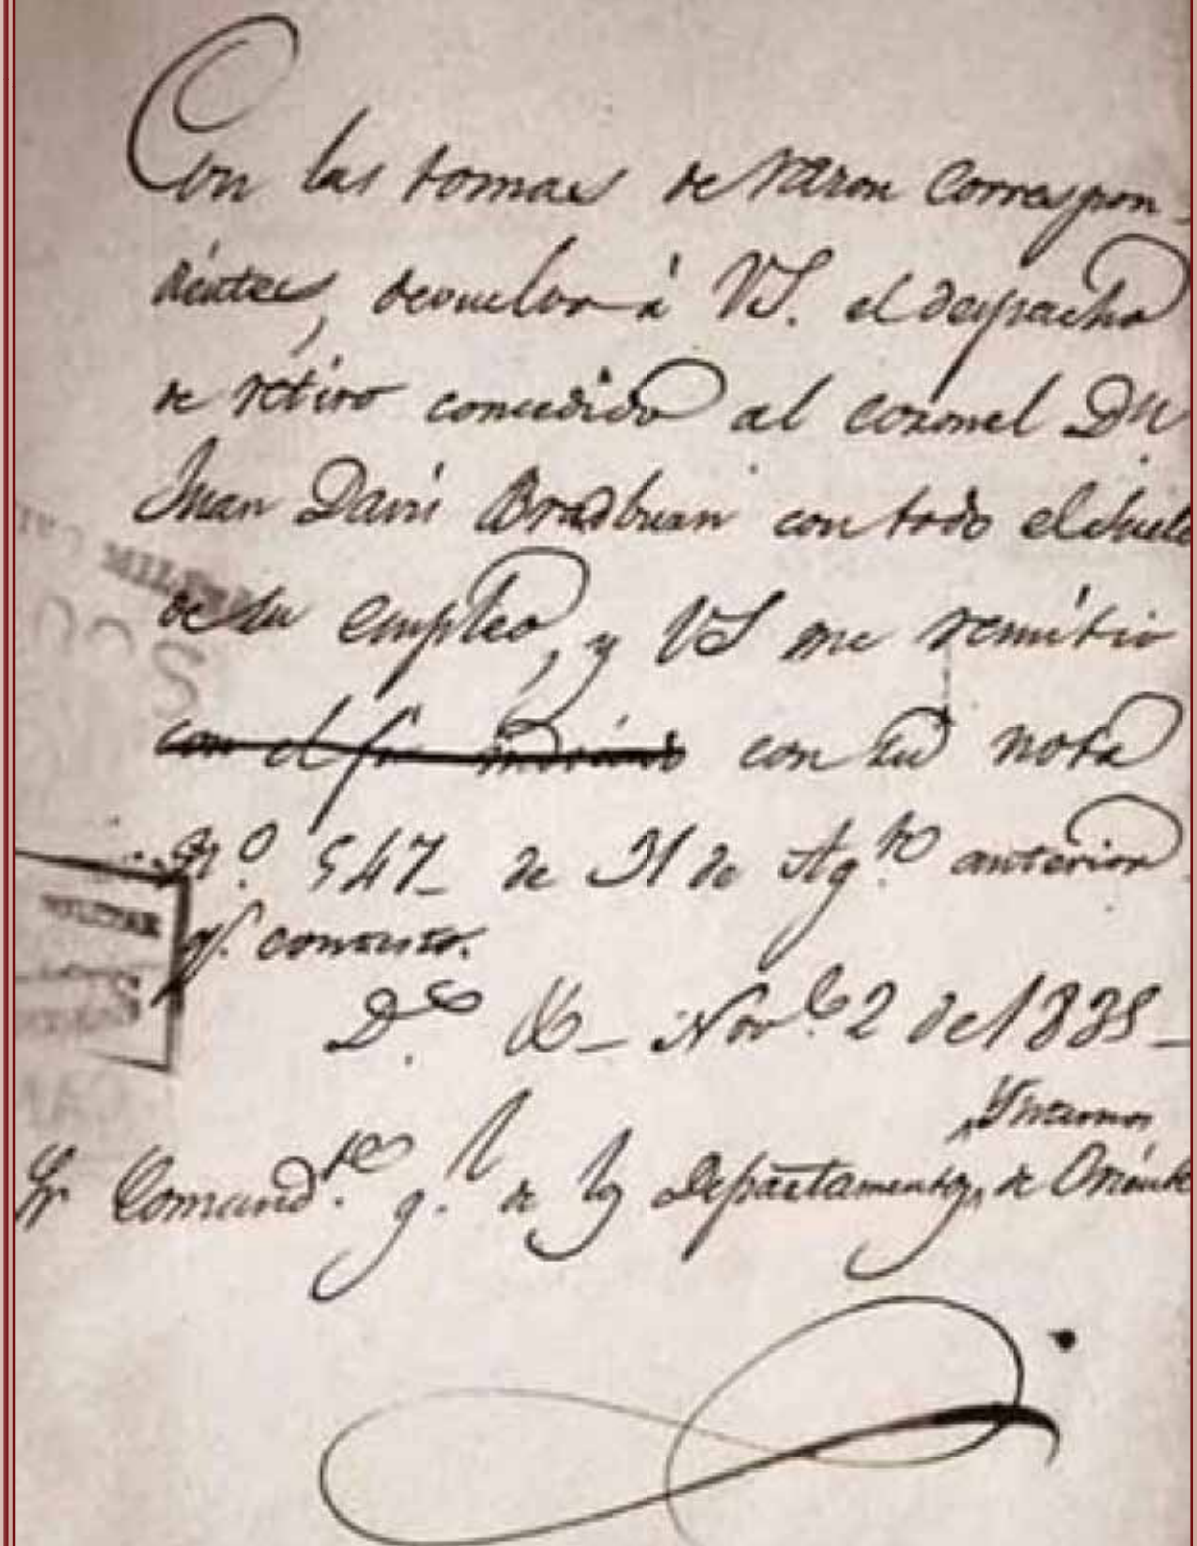 Con las tomas de razon correspon-
dientes, devuelvo á VS. el despacho
de retiro concedido al coronel Dn
Juan Davis Bradburn con todo el sueldo
de su empleo, y VS me remitio
con el fin indicado con su nota
N.º 547 de 31 de Ag.to anterior
q.e contesto.
D.s &- Nov.e 2 de 1838-
Ynternos
Sr Comand.te g.l de los Departamentos de Oriente
MILITAR
MILITAR